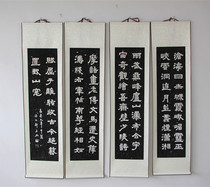 滄海日赤城霞峨嵋雪巫
峽雲洞庭月彭蠡煙瀟湘
雨武夷峰廬山瀑布合宇
宙奇觀繪吾齋壁少陵詩
摩詰畫左傳文馬遷史薛
濤箋右軍帖南華經相如
賦屈子離騷收古今絕藝
置我山窗